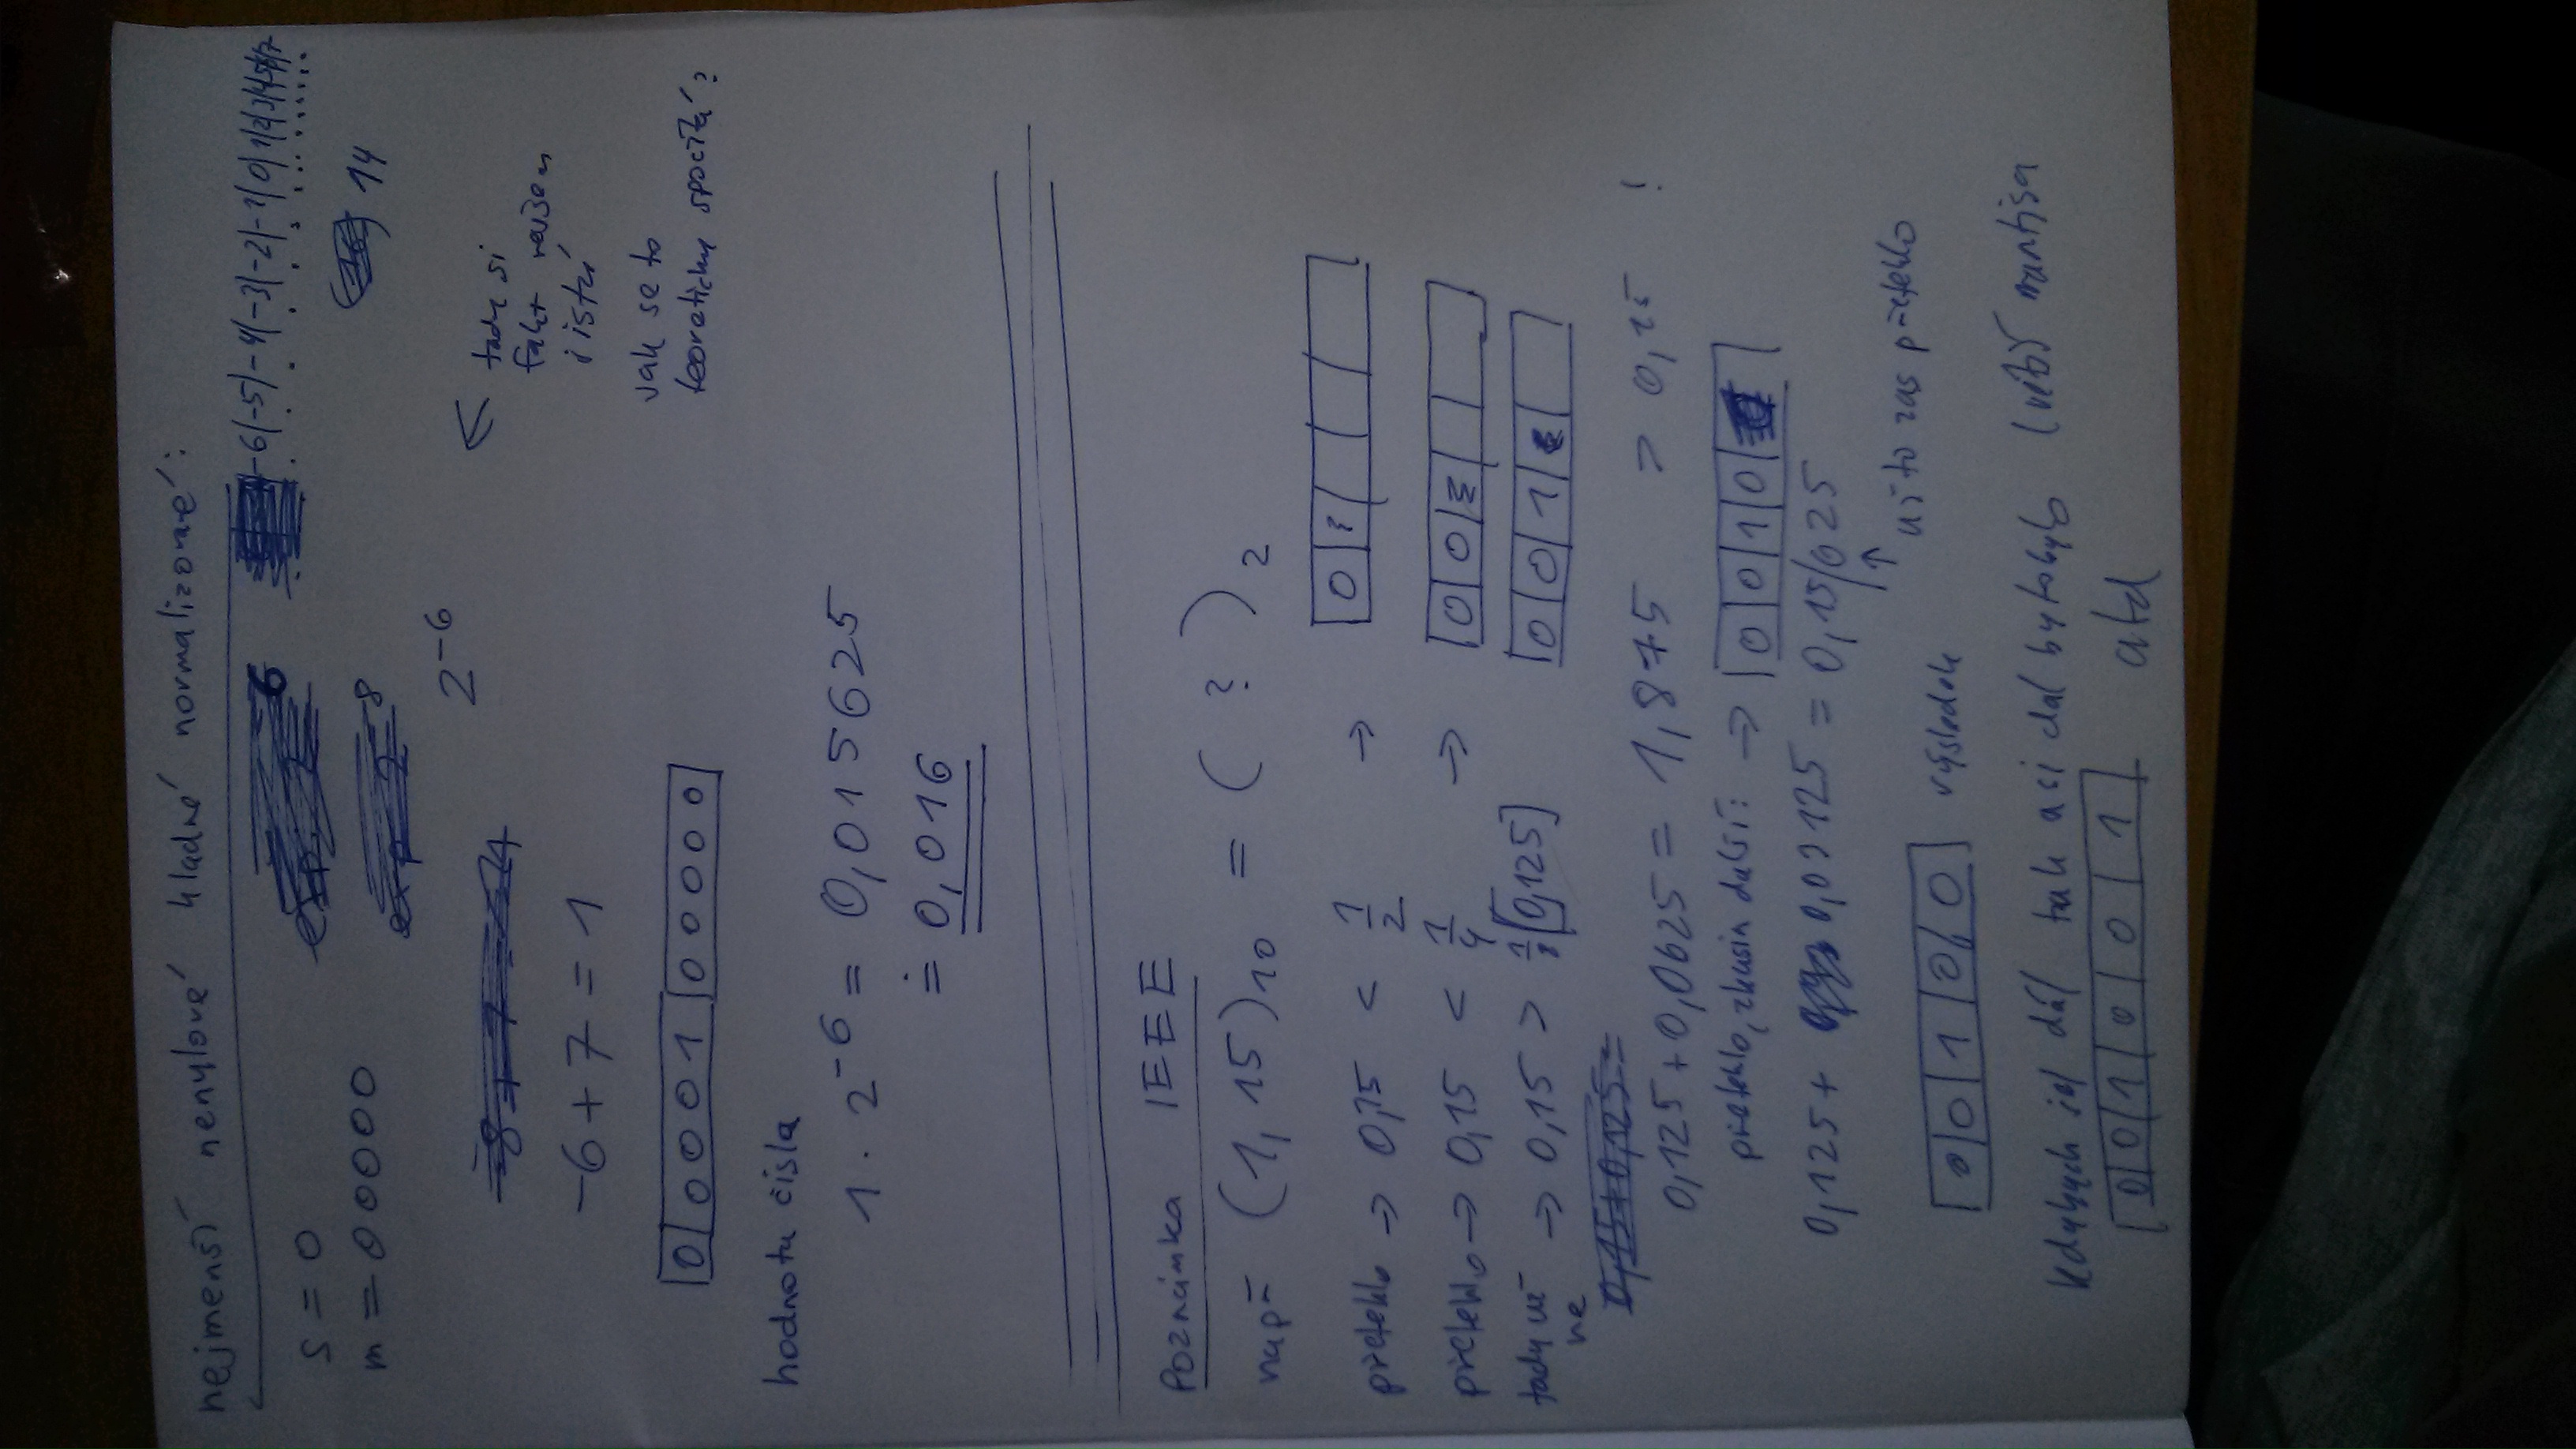 nejmenší nenulové kladné normalizované:
-6|-5|-4|-3|-2|-1|0|1|2|3|4|5|6|7
s = 0
m = 00000
14
2⁻⁶
← tady si
fakt nejsem
jistý
-6 + 7 = 1
jak se to
teoreticky spočítá?
0|0001|0000
hodnota čísla
1 . 2⁻⁶ = 0,015625
≐ 0,016
Poznámka IEEE
např (1,15)₁₀ = ( ? )₂
přeteklo → 0,15 < 1/2 → 0|?| | |
přeteklo → 0,15 < 1/4 → 0|0|?| |
tady už ne → 0,15 > 1/8 [0,125] 0|0|1| |
0,125 + 0,0625 = 1,875 > 0,15 !
přeteklo, zkusím další: → 0|0|1|0| |
0,125 + 0,03125 = 0,15/625
↑ už to zas přeteklo
0|0|1|0|0 výsledek
kdybych jel dál tak asi dál by to bylo (větší mantisa
0|0|1|0|0|1 atd